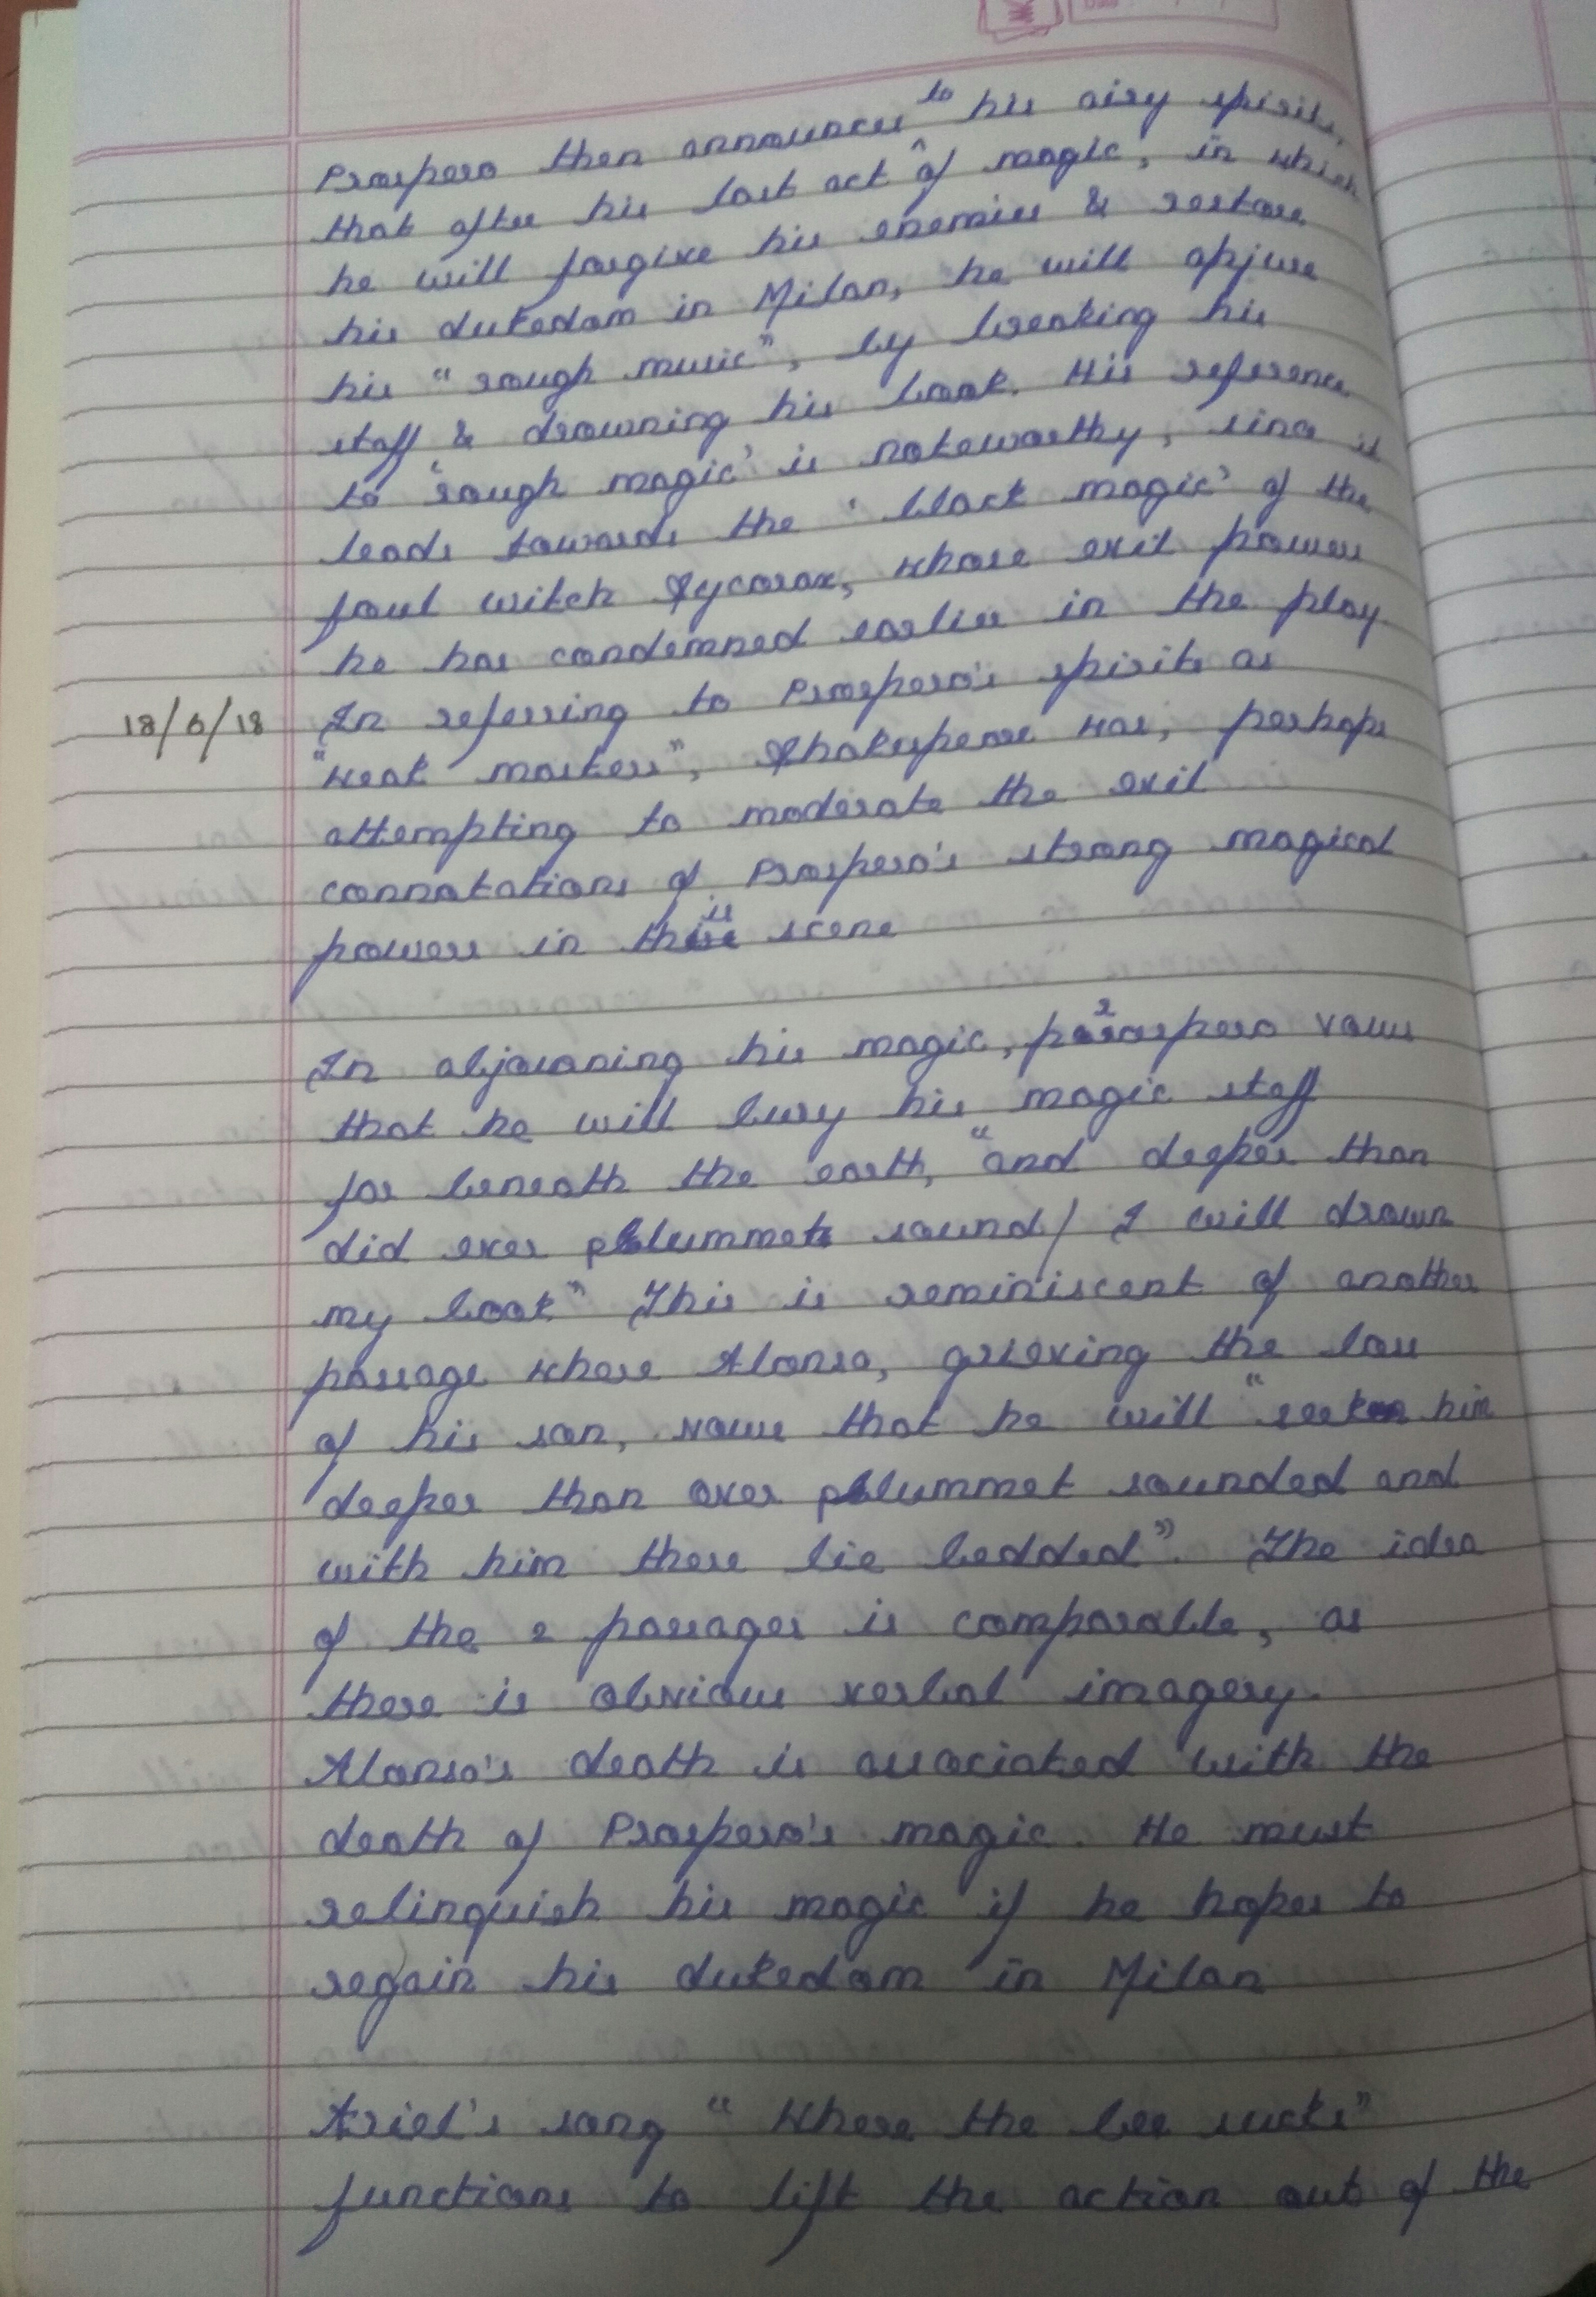 Prospero then announces to his airy spirits,
that after his last act of magic, in which
he will forgive his enemies & restore
his dukedom in Milan, he will abjure
his "rough music", by breaking his
staff & drowning his book. His reference
to 'rough magic' is noteworthy, since it
leads towards the 'black magic' of the
foul witch Sycorax, whose evil powers
he has condemned earlier in the play.
18/6/18 In referring to Prospero's spirits as
"weak masters", Shakespeare was, perhaps
attempting to moderate the evil
connotations of Prospero's strong magical
powers in this scene
In abjouring his magic, prospero vows
that he will bury his magic staff
far beneath the earth, "and deeper than
did ever plummet sound/ I will drown
my book" This is reminiscent of another
passage where Alonso, grieving the loss
of his son, vows that he will "seek him
deeper than ever plummet sounded and
with him there lie bedded". The idea
of the 2 passages is comparable, as
there is obvious verbal imagery.
Alonso's death is associated with the
death of Prospero's magic. He must
relinquish his magic if he hopes to
regain his dukedom in Milan
Ariel's song "Where the bee sucks"
functions to lift the action out of the